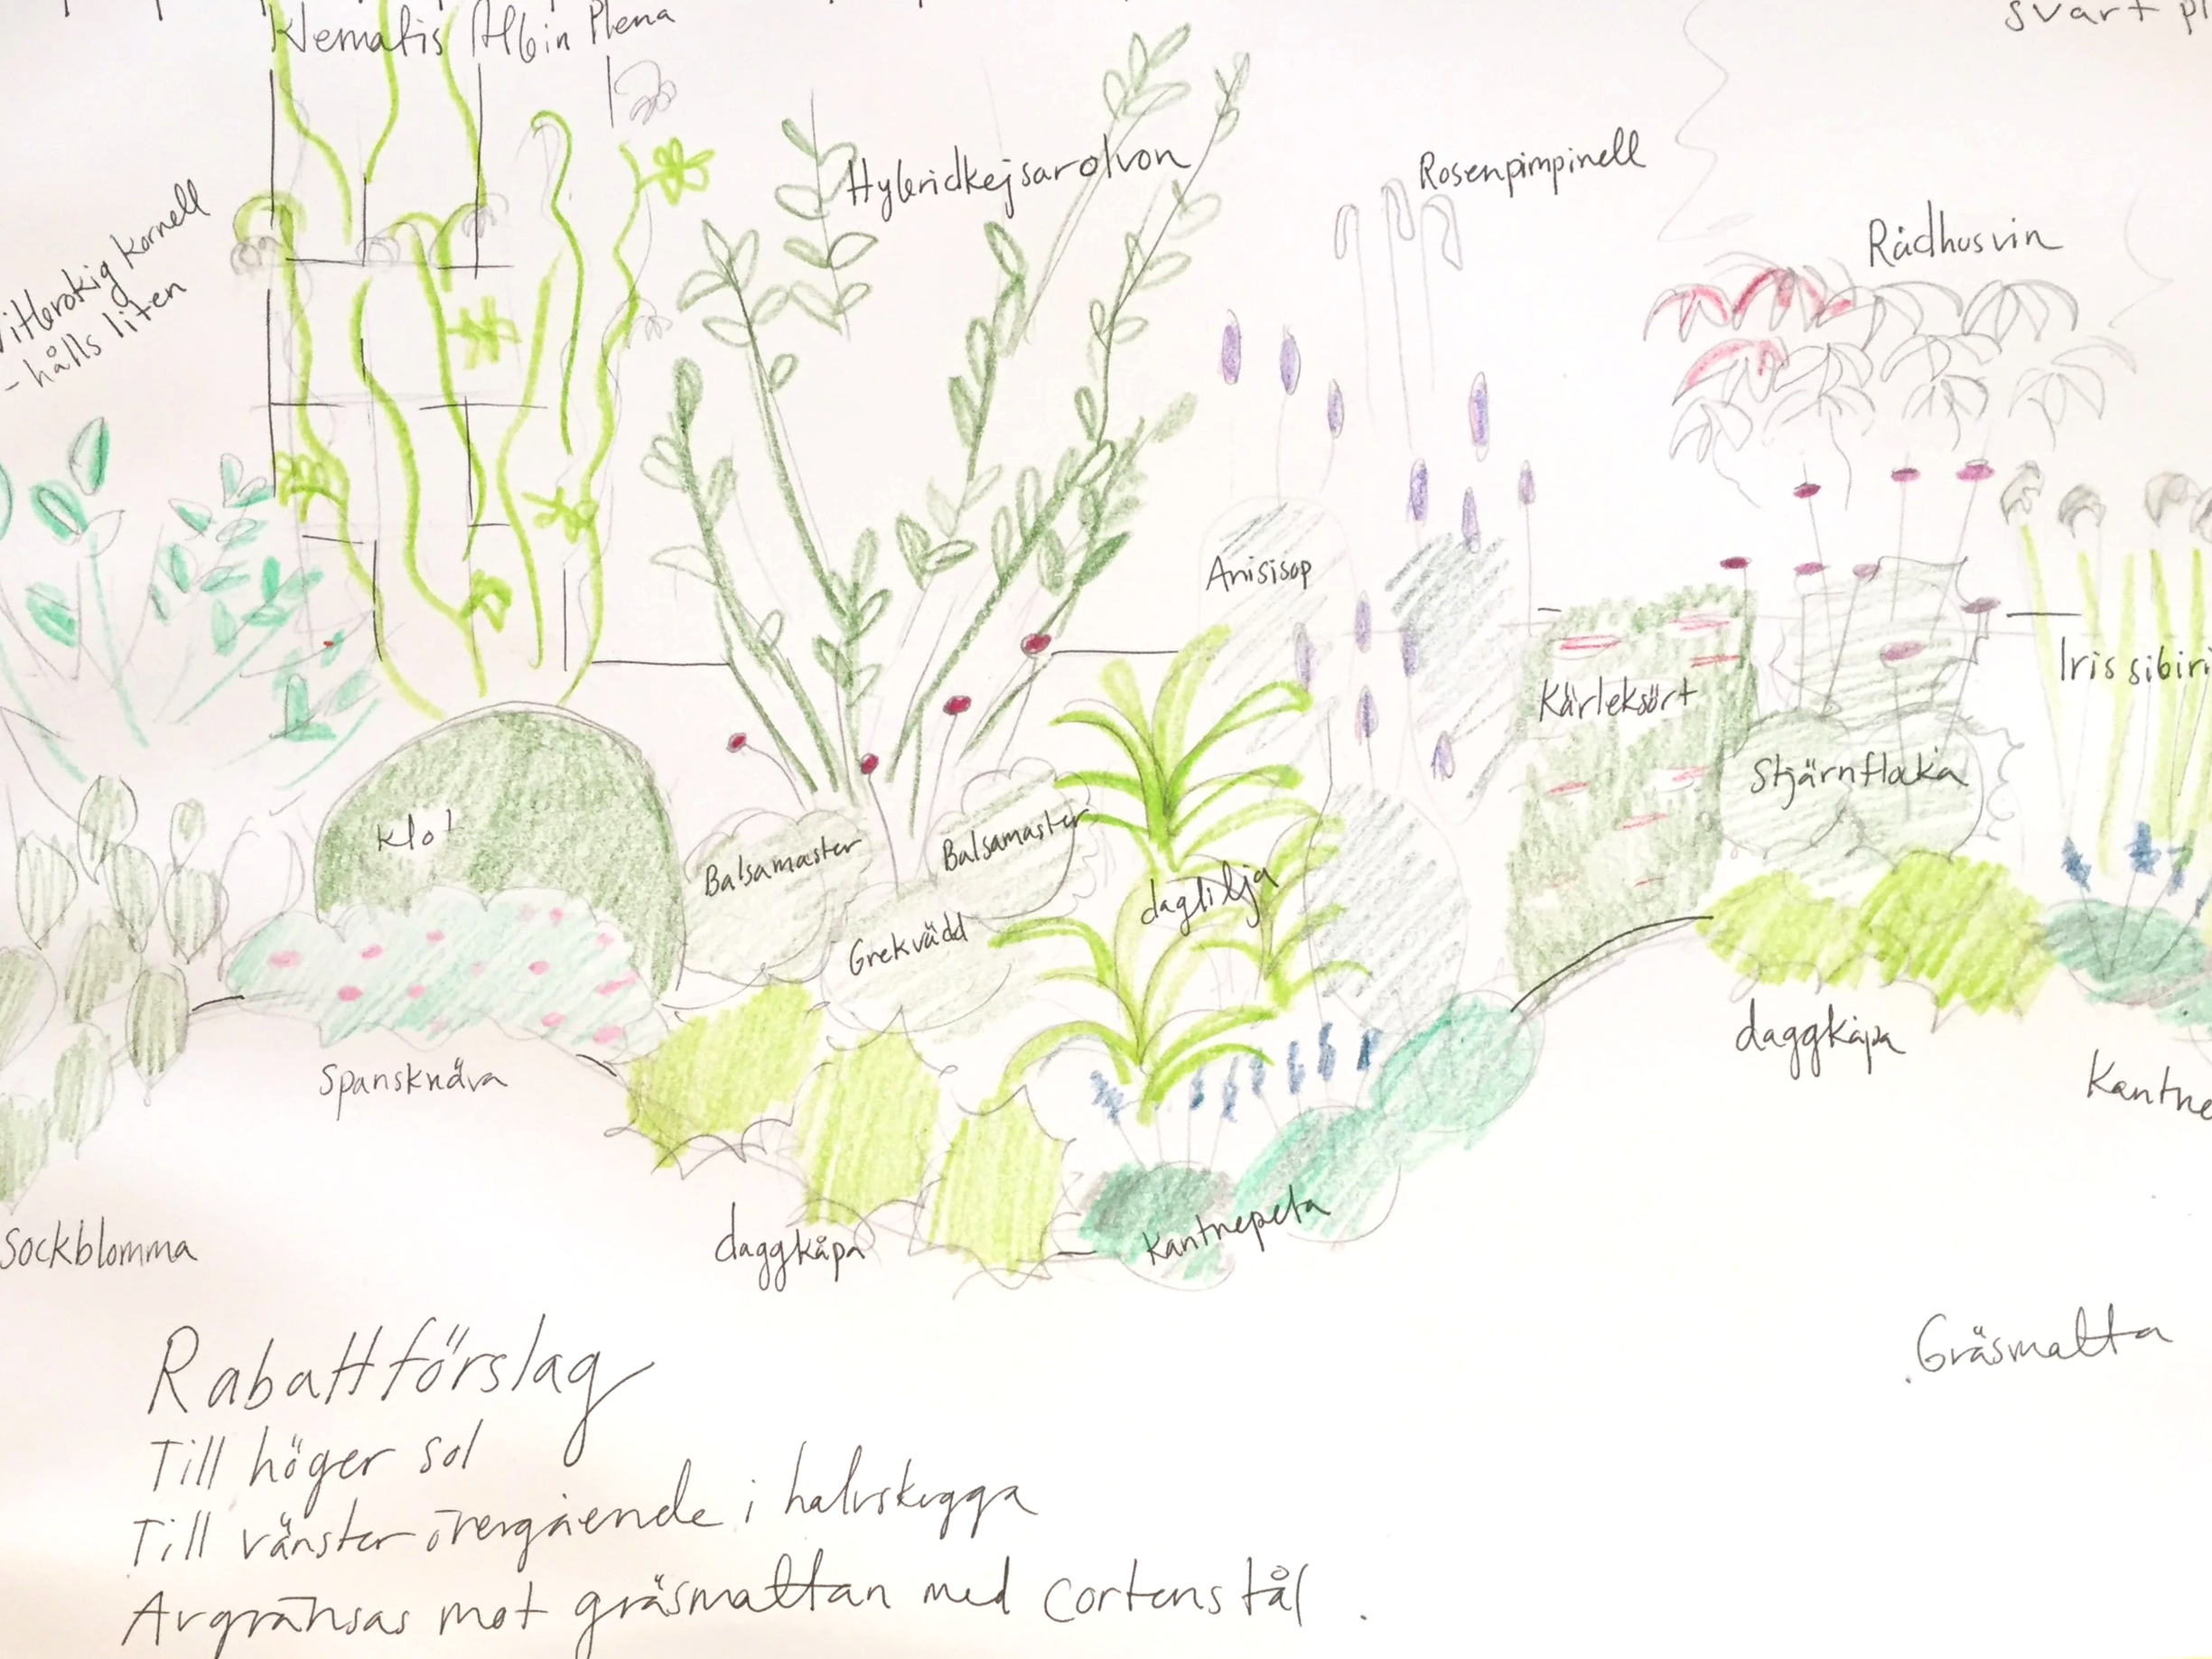 Klematis Albin Plena
svart
kornell
- hålls liten
Hybridkejsarolvon
Rosenpimpinell
Rådhusvin
Anisisop
Kärleksört
Stjärnflocka
Iris sibiri
Klot
Balsamaster
Balsamaster
Grekvädd
daglilja
Spansknäva
daggkåpa
Kantne
Sockblomma
daggkåpa
Kantnepeta
Gräsmatta
Rabattförslag
Till höger sol
Till vänster övergående i halvskugga
Avgränsas mot gräsmattan med cortenstål.